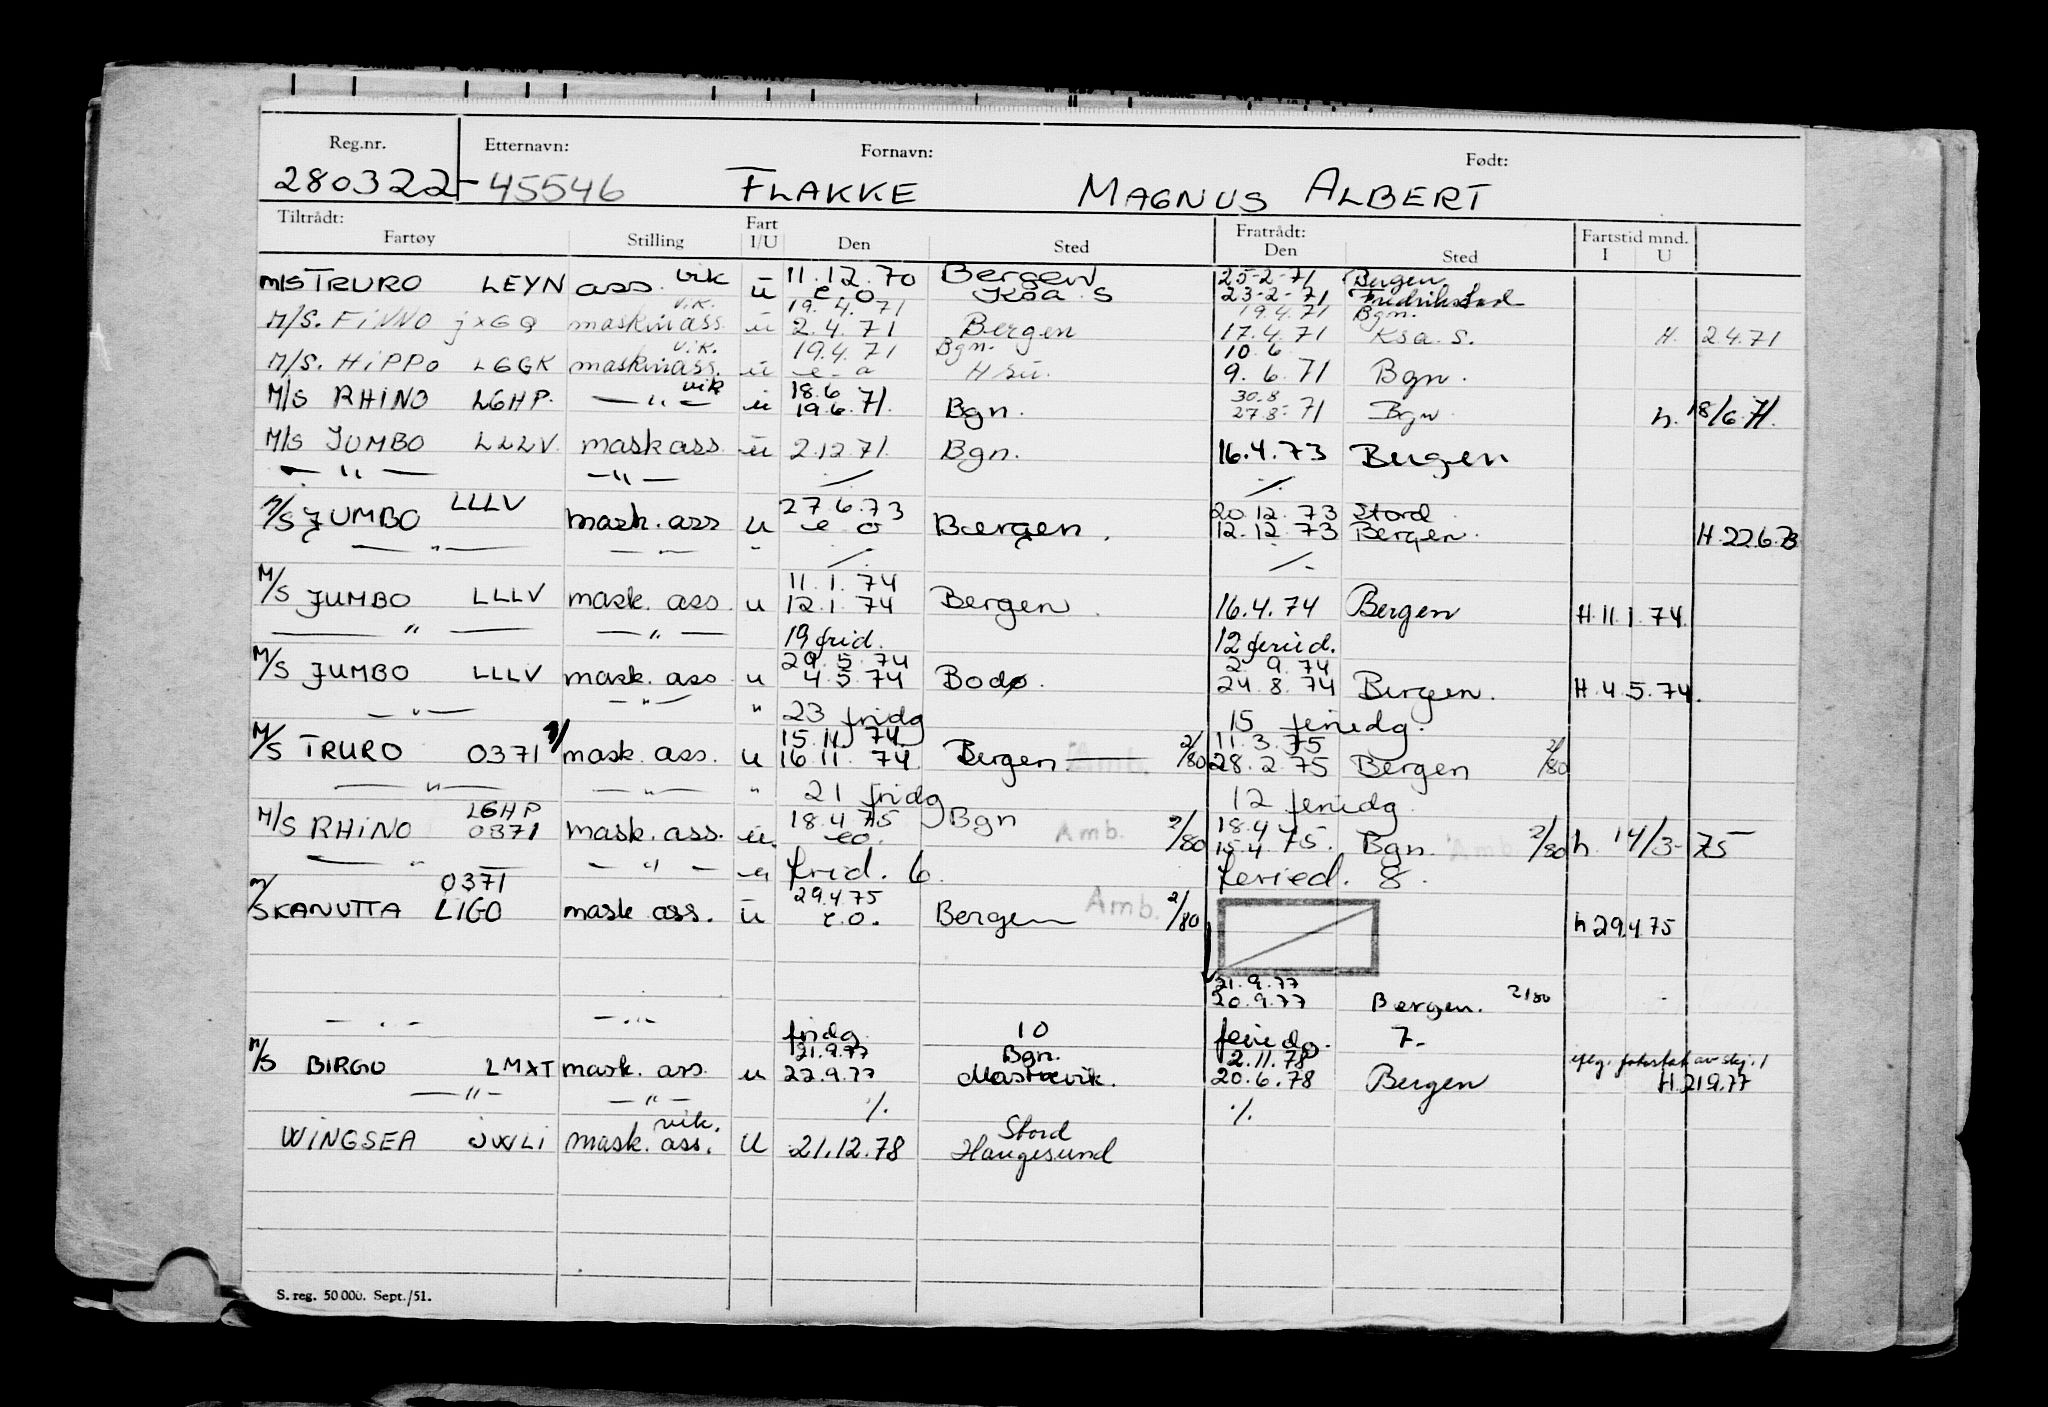 Reg.nr. Etternavn: Fornavn: Født:
280322-45546 FLAKKE MAGNUS ALBERT
Tiltrådt: Fartøy Stilling Fart I/U Den Sted Fratrådt: Den Sted Fartstid mnd. I U
vik 11.12.70 Bergen 25-2-71 Bergen
M/S TRURO LEYN ass. u e o Ksa. S 23-2-71 Fredrikstad
v.k. 19.4.71 19.4.71 Bgn.
M/S. FINNO jxGQ maskinass. u 2.4.71 Bergen 17.4.71 Ksa. S. H. 2.4.71
v.k. 19.4.71 Bgn. 10.6
M/S. HIPPO LGGK maskinass. u e-o H su. 9.6.71 Bgn.
vik 18.6 30.8
M/S RHINO LGHP. — " — u 19.6.71. Bgn. 27.8-71 Bgn h. 18/6.71.
M/S JUMBO LLLV. maskass. u 2.12.71. Bgn. 16.4.73 Bergen
— " — — " — ./. ./.
LLLV 27.6.73 20.12.73 Stord
M/S JUMBO mask. ass u e o Bergen. 12.12.73 Bergen. H.22.6.73
— " — — " — " ./. ./.
11.1.74
M/S JUMBO LLLV mask. ass. u 12.1.74 Bergen. 16.4.74 Bergen H.11.1.74.
— " — — " — 19 frid. 12 feried.
29.5.74 2.9.74
M/S JUMBO LLLV mask. ass u 4.5.74 Bodø. 24.8.74 Bergen. H.4.5.74.
— " — — " — " 23 fridg 15 feriedg.
15.11.74 11.3.75
M/S TRURO 0371 mask. ass. u 16.11.74. Bergen Amb. 2/80 28.2.75 Bergen 2/80
— " — — " — " 21 fridg 12 feriedg.
LGHP 18.4.75 18.4
M/S RHINO 0371 mask. ass. u. eo. Bgn Amb. 2/80 15.4 75. Bgn. Amb. 2/80 h. 14/3-75
— " — — " — u frid. 6. feried. 8.
0371 29.4.75
M/S KANUTTA LIGO mask ass. u e.o. Bergen Amb. 2/80 h 29.4.75
21.9.77
20.9.77 Bergen. 2/80
— " — — " — fridg. 10 feriedg. 7.
21.9.77 Bgn. 2.11.78 av skj. 1
M/S BIRGO LMXT mask. ass. u 22.9.77 Mastrevik. 20.6.78 Bergen H.21.9.77
— " — — " — ./. ./.
vik. Stord
WINGSEA JWLI mask. ass. U 21.12.78 Haugesund
S. reg. 50 000. Sept./51.